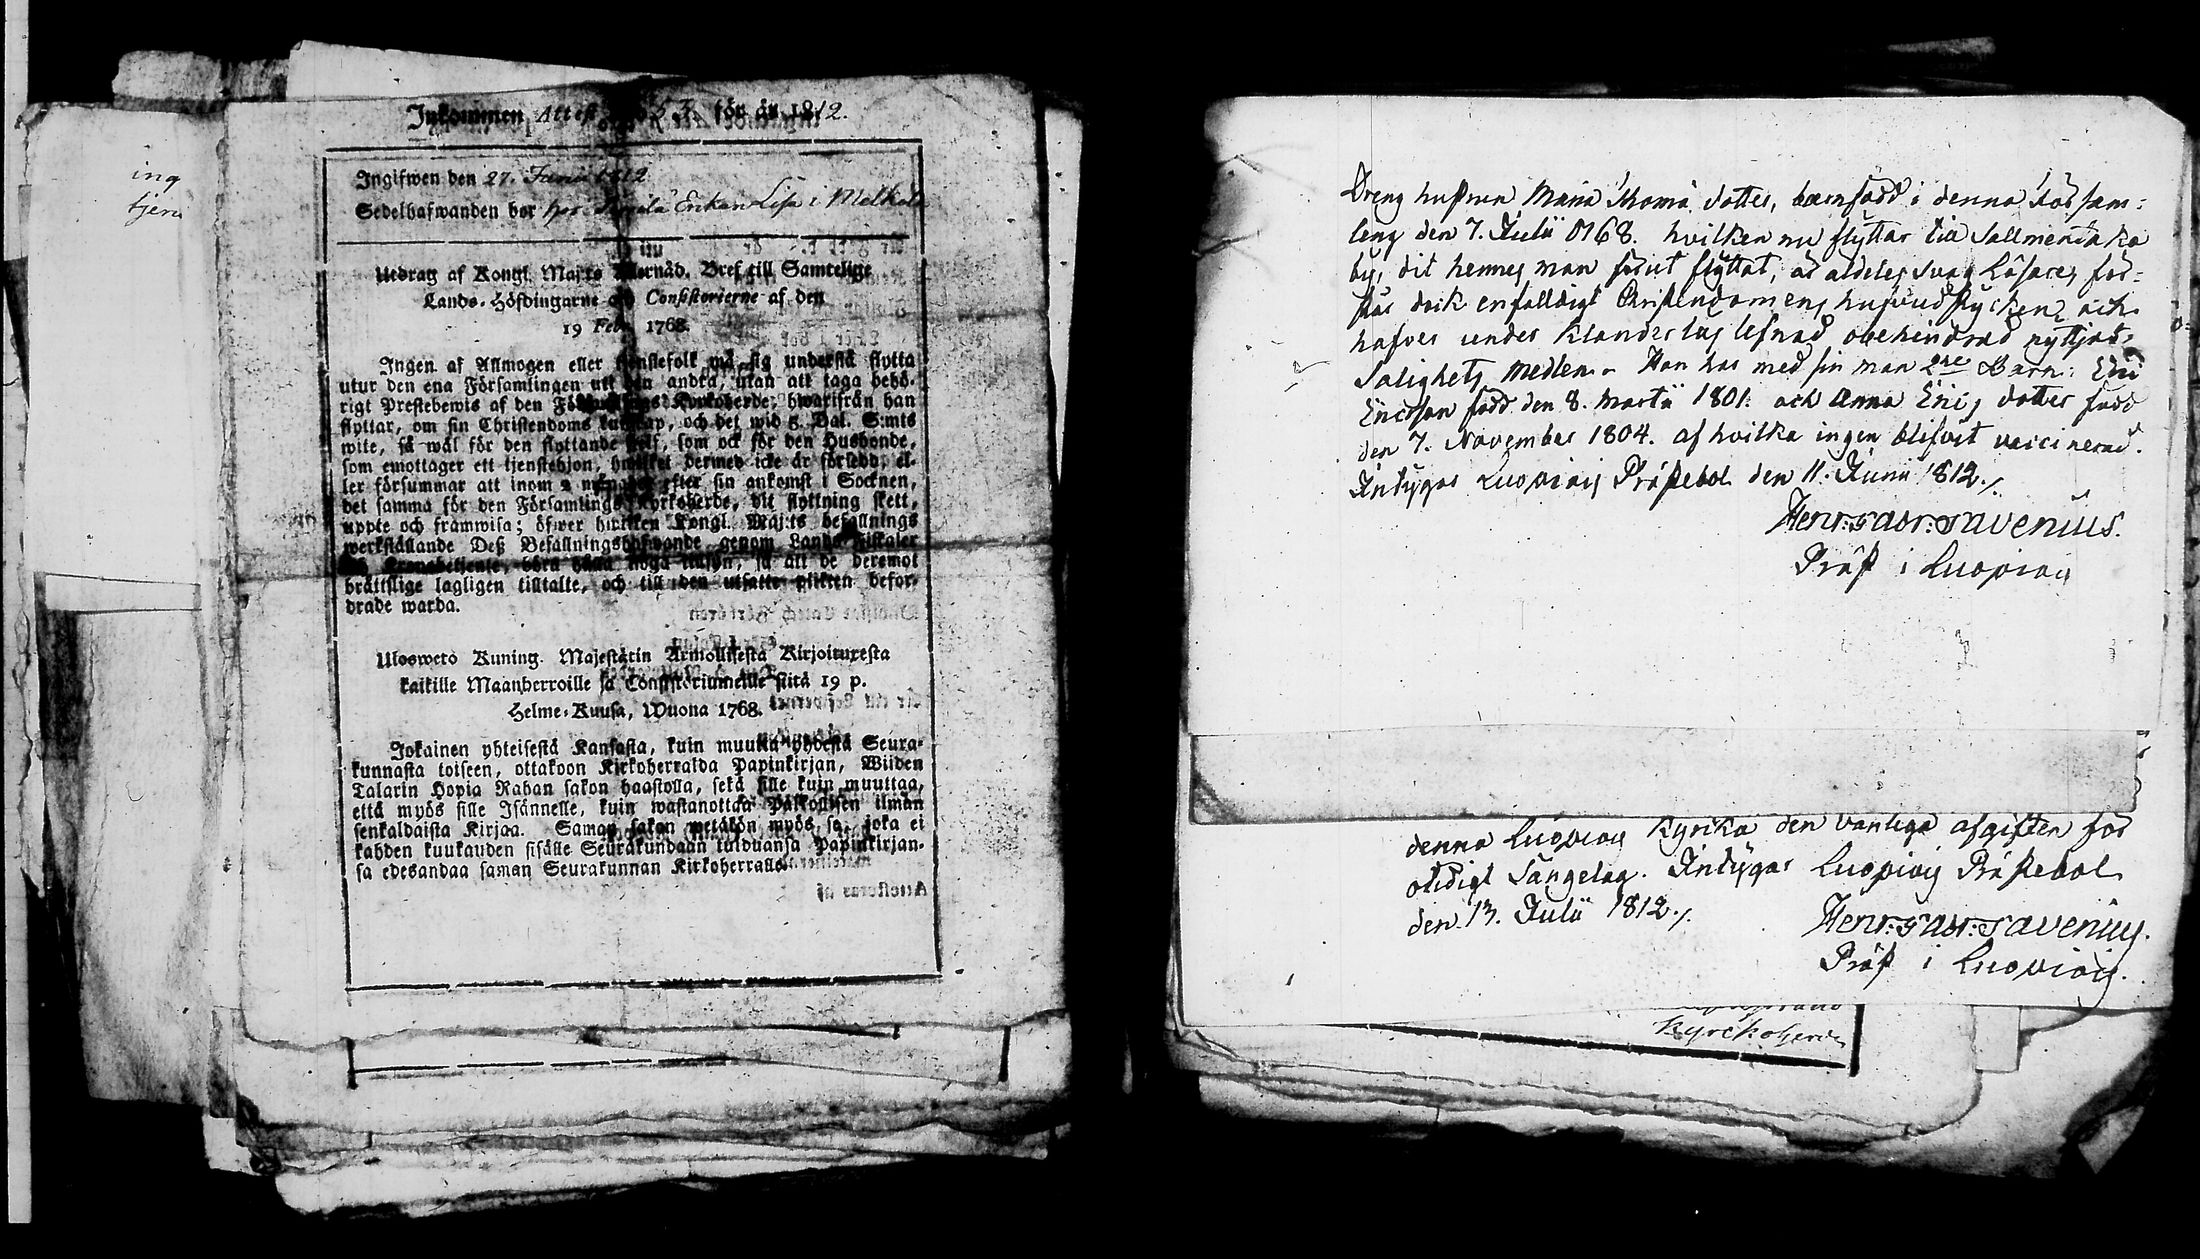 ing
tjen
Inkommen Attest No 53. för år 1812.
Ingifwen den 27. Junii 1812
Sedelhafwanden bor hos Enkan Lisa i Melkola
Utdrag af Kongl. Maj:ts Nåd. Bref till Samtelige
Lands-Höfdingarne och Consistorierne af den
19 Febr. 1768.
Ingen af Allmogen eller tjenstefolk må sig understå flytta
utur den ena Församlingen uti den andra, utan att taga behö-
rigt Prestebewis af den Församlings Kyrkoherde, hwarifrån han
flyttar, om sin Christendoms kunskap, och det wid 5. Dal. S:mts
wite, så wäl för den flyttande sjelf, som ock för den Husbonde,
som emottager ett tjenstehjon, hwilket dermed icke är försedd, el-
ler försummar att inom 2 månader efter sin ankomst i Socknen,
det samma för den Församlings Kyrkoherde, dit flyttning skett,
uppte och framwisa; öfwer hwilken Kongl. Maj:ts befallnings
werkställande Deß Befallningshafwande genom Lands-Fiskaler
och Kronobetjente, böra hålla noga tillsyn, så att de deremot
bråttslige lagligen tilltalte, och till den utsatte plikten befor-
drade warda.
Uloswetö Kuning. Majestätin Armollisesta Kirjoituxesta
kaikille Maanherroille ja Consistoriumeille siitä 19 p.
Helme-Kuusa, Wuona 1768.
Jokainen yhteisestä Kansasta, kuin muutta yhdestä Seura-
kunnasta toiseen, ottakoon Kirkoherralda Papinkirjan, Wiiden
Talarin Hopia Rahan sakon haastolla, sekä sille kuin muuttaa,
että myös sille Isännelle, kuin wastanottaa Palkollisen ilman
senkaldaista Kirjaa. Saman sakon wetäkön myös se, joka ei
kahden kuukauden sisälle Seurakundaan tulduansa Papinkirjan-
sa edesandaa saman Seurakunnan Kirkoherralle.
Attesteras af
Dreng hustrun Maria Thomæ dotter, barnfödd i denna Försam-
ling den 7. Julii 0168. hvilken nu flyttar till Sallmentaka
by, dit hennes man förut flyttat, är aldeles svag Läsare, för-
står dock enfalldigt Christendomens hufvudstycken, och
hafver under klanderlös lefnad obehindrad nyttjat
Salighets medlen. Hon har med sin man 2ne Barn: Eric
Ericsson född den 8. Martii 1801. och Anna Erics dotter född
den 7. November 1804. af hvilka ingen blifvit vaccinerad.
Intygar Luopiois Prästebol den 11. Junii 1812./.
Henr: Gabr: Gavenius.
Präst i Luopiois
denna Luopiois Kyrka den vanliga afgiften för
otidigt Sängelag. Intygar Luopiois Prästebol
den 13. Julii 1812./.
Henr: Gabr: Gavenius.
Präst i Luopiois.
Kyrckoherde